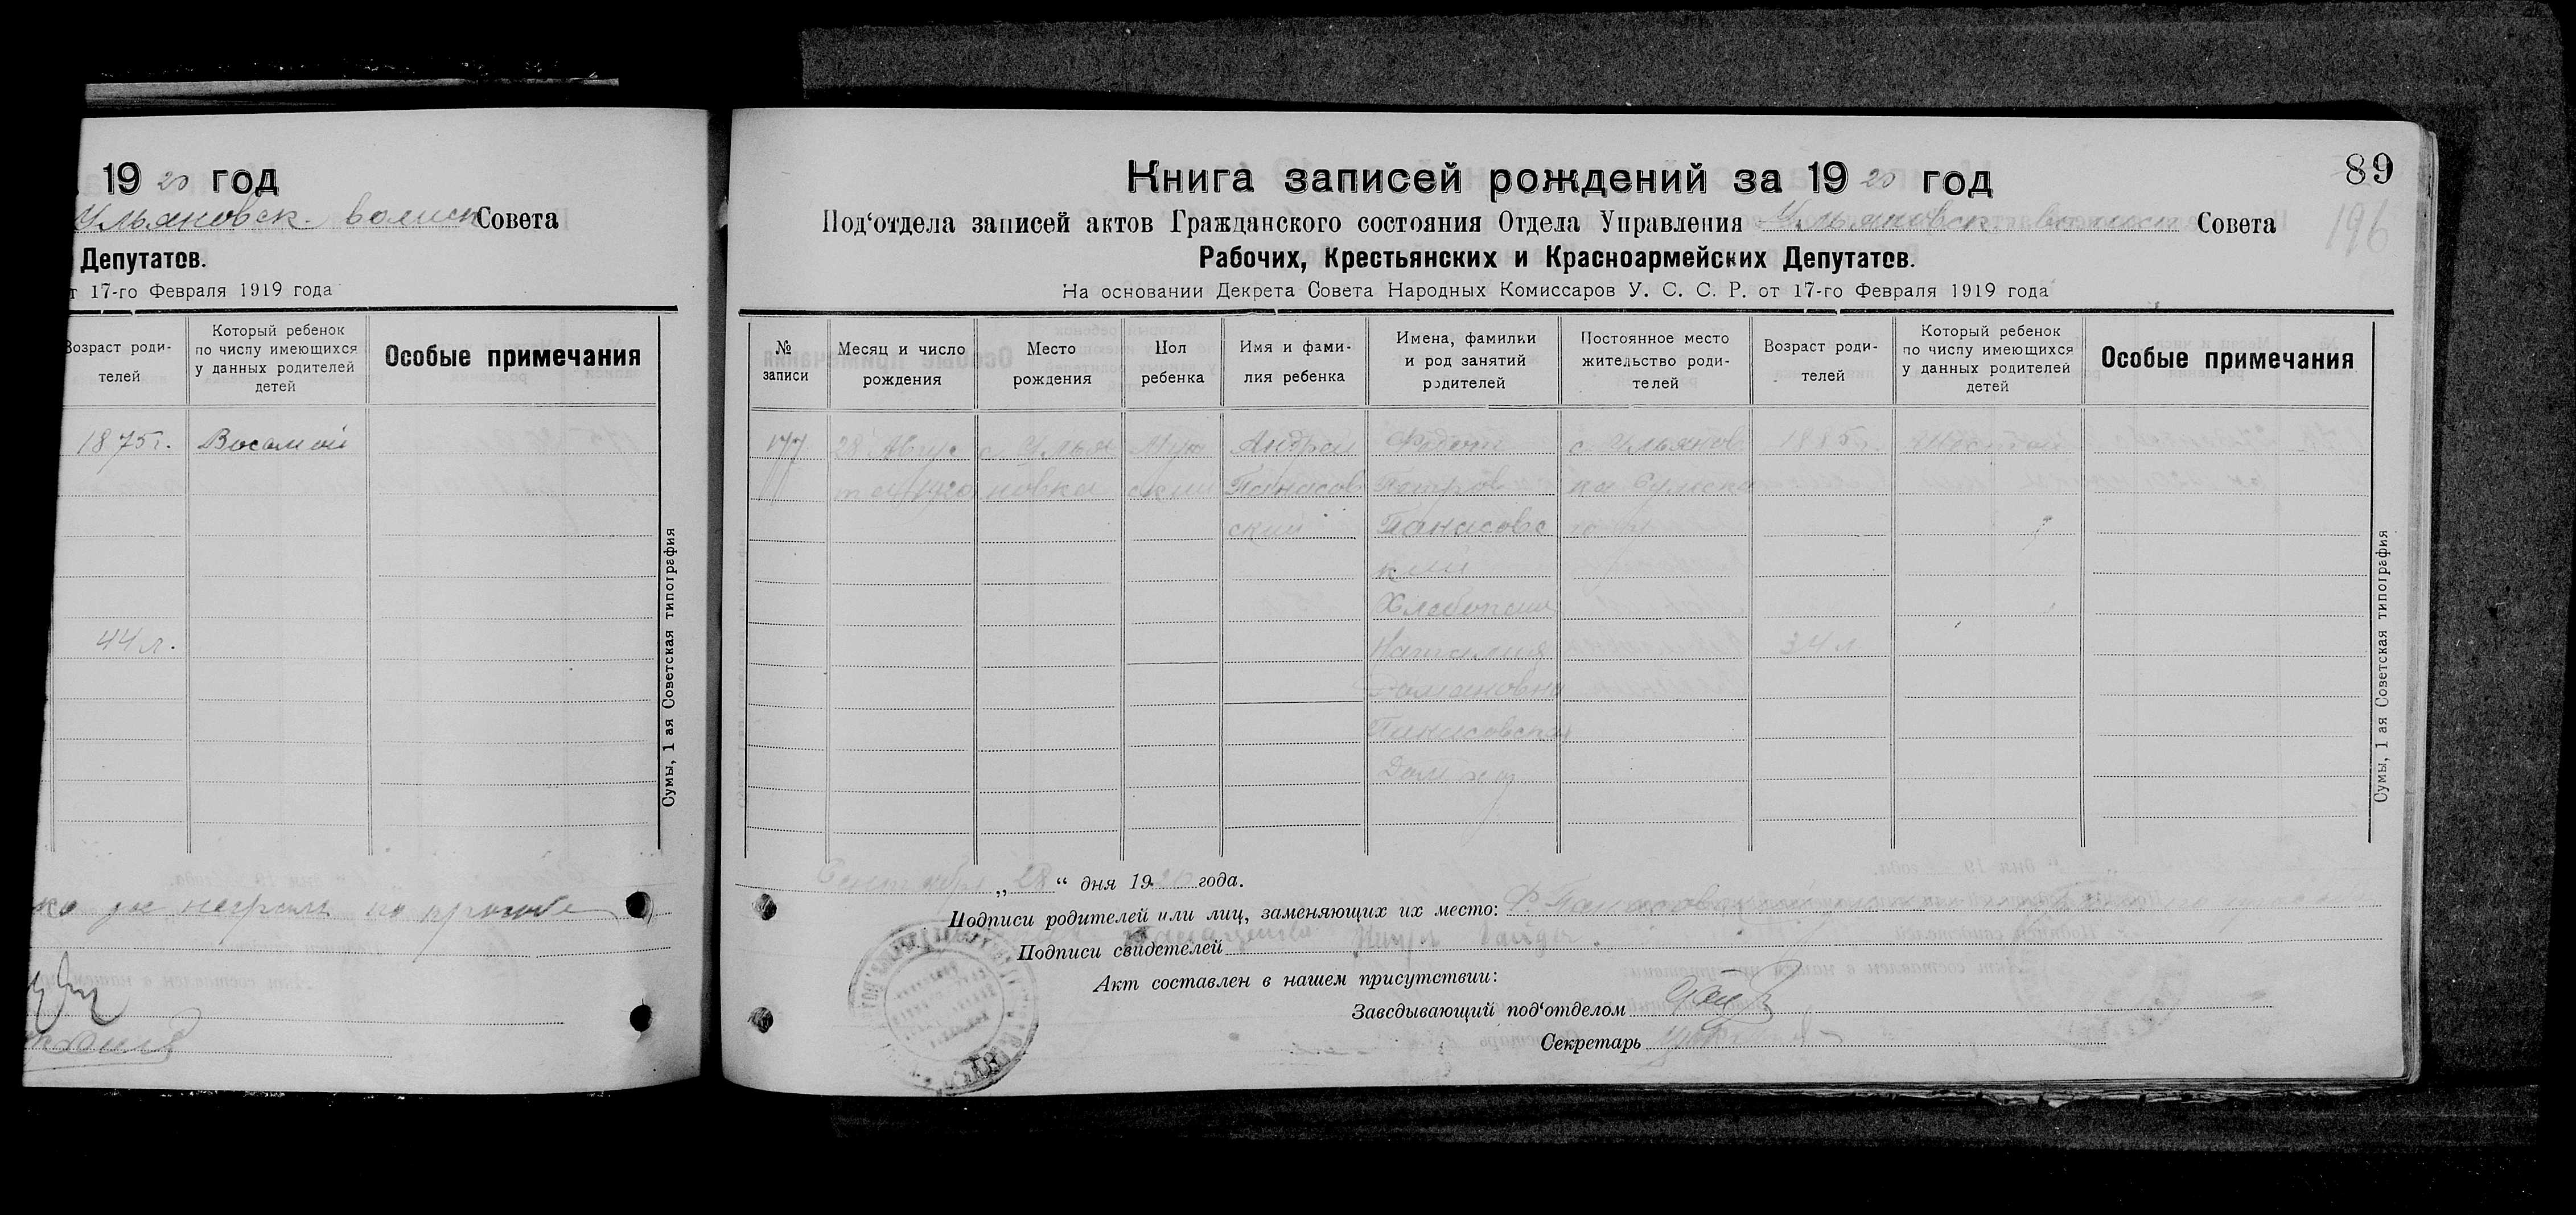 19 20 год
Ульяновск. волисп Совета
Депутатов.
т 17-го Февраля 1919 года
Возраст роди-
телей
Который ребенок
по числу имеющихся
у данных родителей
детей
Особые примечания
1875 г. Восьмой
44 л.
Сумы, 1 ая Советская типография
89
196
Книга записей рождений за 19 20 год
Под‘отдела записей актов Гражданского состояния Отдела Управления Ульяновск. волисп Совета
Рабочих, Крестьянских и Красноармейских Депутатов.
На основании Декрета Совета Народных Комиссаров У. С. С. Р. от 17-го Февраля 1919 года
№
записи
Месяц и число
рождения
Место
рождения
Пол
ребенка
Имя и фами-
лия ребенка
Имена, фамилки
и род занятий
родителей
Постоянное место
жительство роди-
телей
Возраст роди-
телей
Который ребенок
по числу имеющихся
у данных родителей
детей
Особые примечания
177 28 Авгус с. Улья Муж Андрей Федот с. Ульянов 1885 г. Шестой
та 1920 новка ский Панасов Петров ка Сумска
ский Панасовс го у
кий
Хлебопаш
Наталия 34 л
Романовна
Панасовская
Дом хоз
Сентября „ 28 “ дня 1920 года.
Подписи родителей или лиц, заменяющих их место: Ф. Панасовский
Подписи свидетелей
Акт составлен в нашем присутствии:
Завсдывающий под‘отделом
Секретарь
Сумы, 1 ая Советская типография